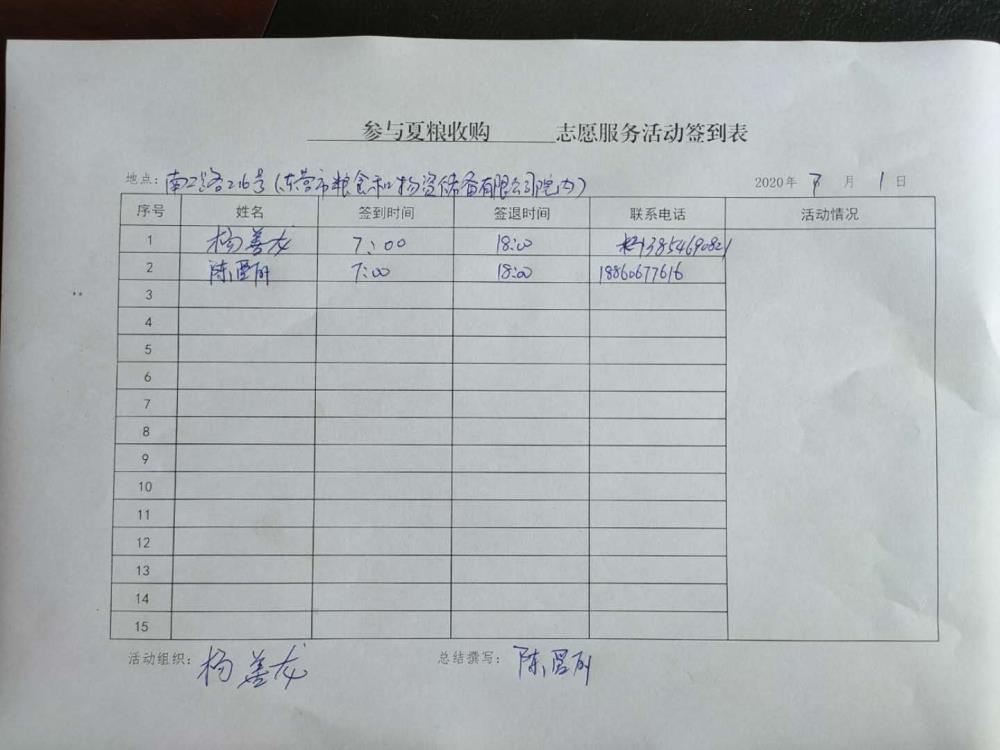 参与夏粮收购 志愿服务活动签到表
地点：南二路216号（东营市粮食和物资储备有限公司院内） 2020年 7 月 1 日
序号 姓名 签到时间 签退时间 联系电话 活动情况
1 杨善龙 7:00 18:00 13854690821
2 陈 7:00 18:00 18860677616
3
4
5
6
7
8
9
10
11
12
13
14
15
活动组织：杨善龙 总结撰写：陈